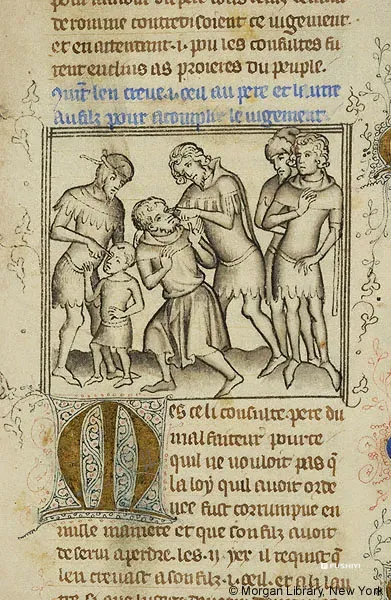 de romme contredisoient ce iugement.
et en attentant .i. pou les consultes fu
rent enclins as proieres du peuple.
Quant len creve .i. oeil au pere et li autre
Au filz pour acomplir le iugement
Mes celi consulte pere du
malfaiteur pour ce
quil ne vouloit pas q
la loy quil avoit orde
nee fust corrumpue en
nulle maniere et que son filz avoit
deservi a perdre. les .ij. yex il requist q
len crevast a son filz .i. oeil. et a li lau
tre si que
FUSHIYI
© Morgan Library, New York